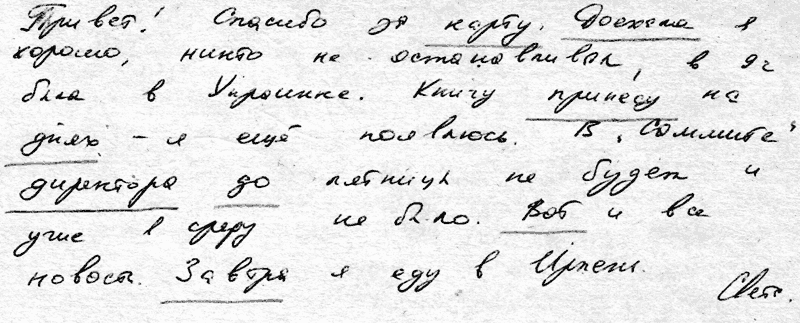 Привет! Спасибо за карту. Доехала я
хорошо, никто не останавливал, в 9ч
была в Украинке. Книгу принесу на
днях - я ещё появлюсь. В "Саммите"
директора до пятницы не будет и
уже в среду не было. Вот и все
новости. Завтра я еду в Ирпень.
Света.